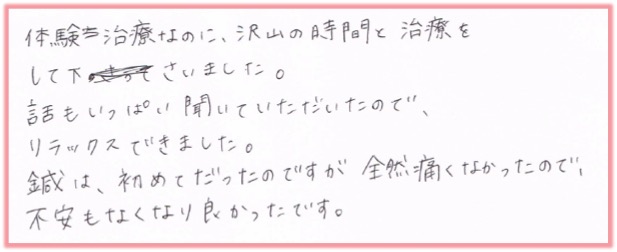 体験治療なのに、沢山の時間と治療を
して下さいました。
話もいっぱい聞いていただいたので、
リラックスできました。
鍼は、初めてだったのですが全然痛くなかったので、
不安もなくなり良かったです。